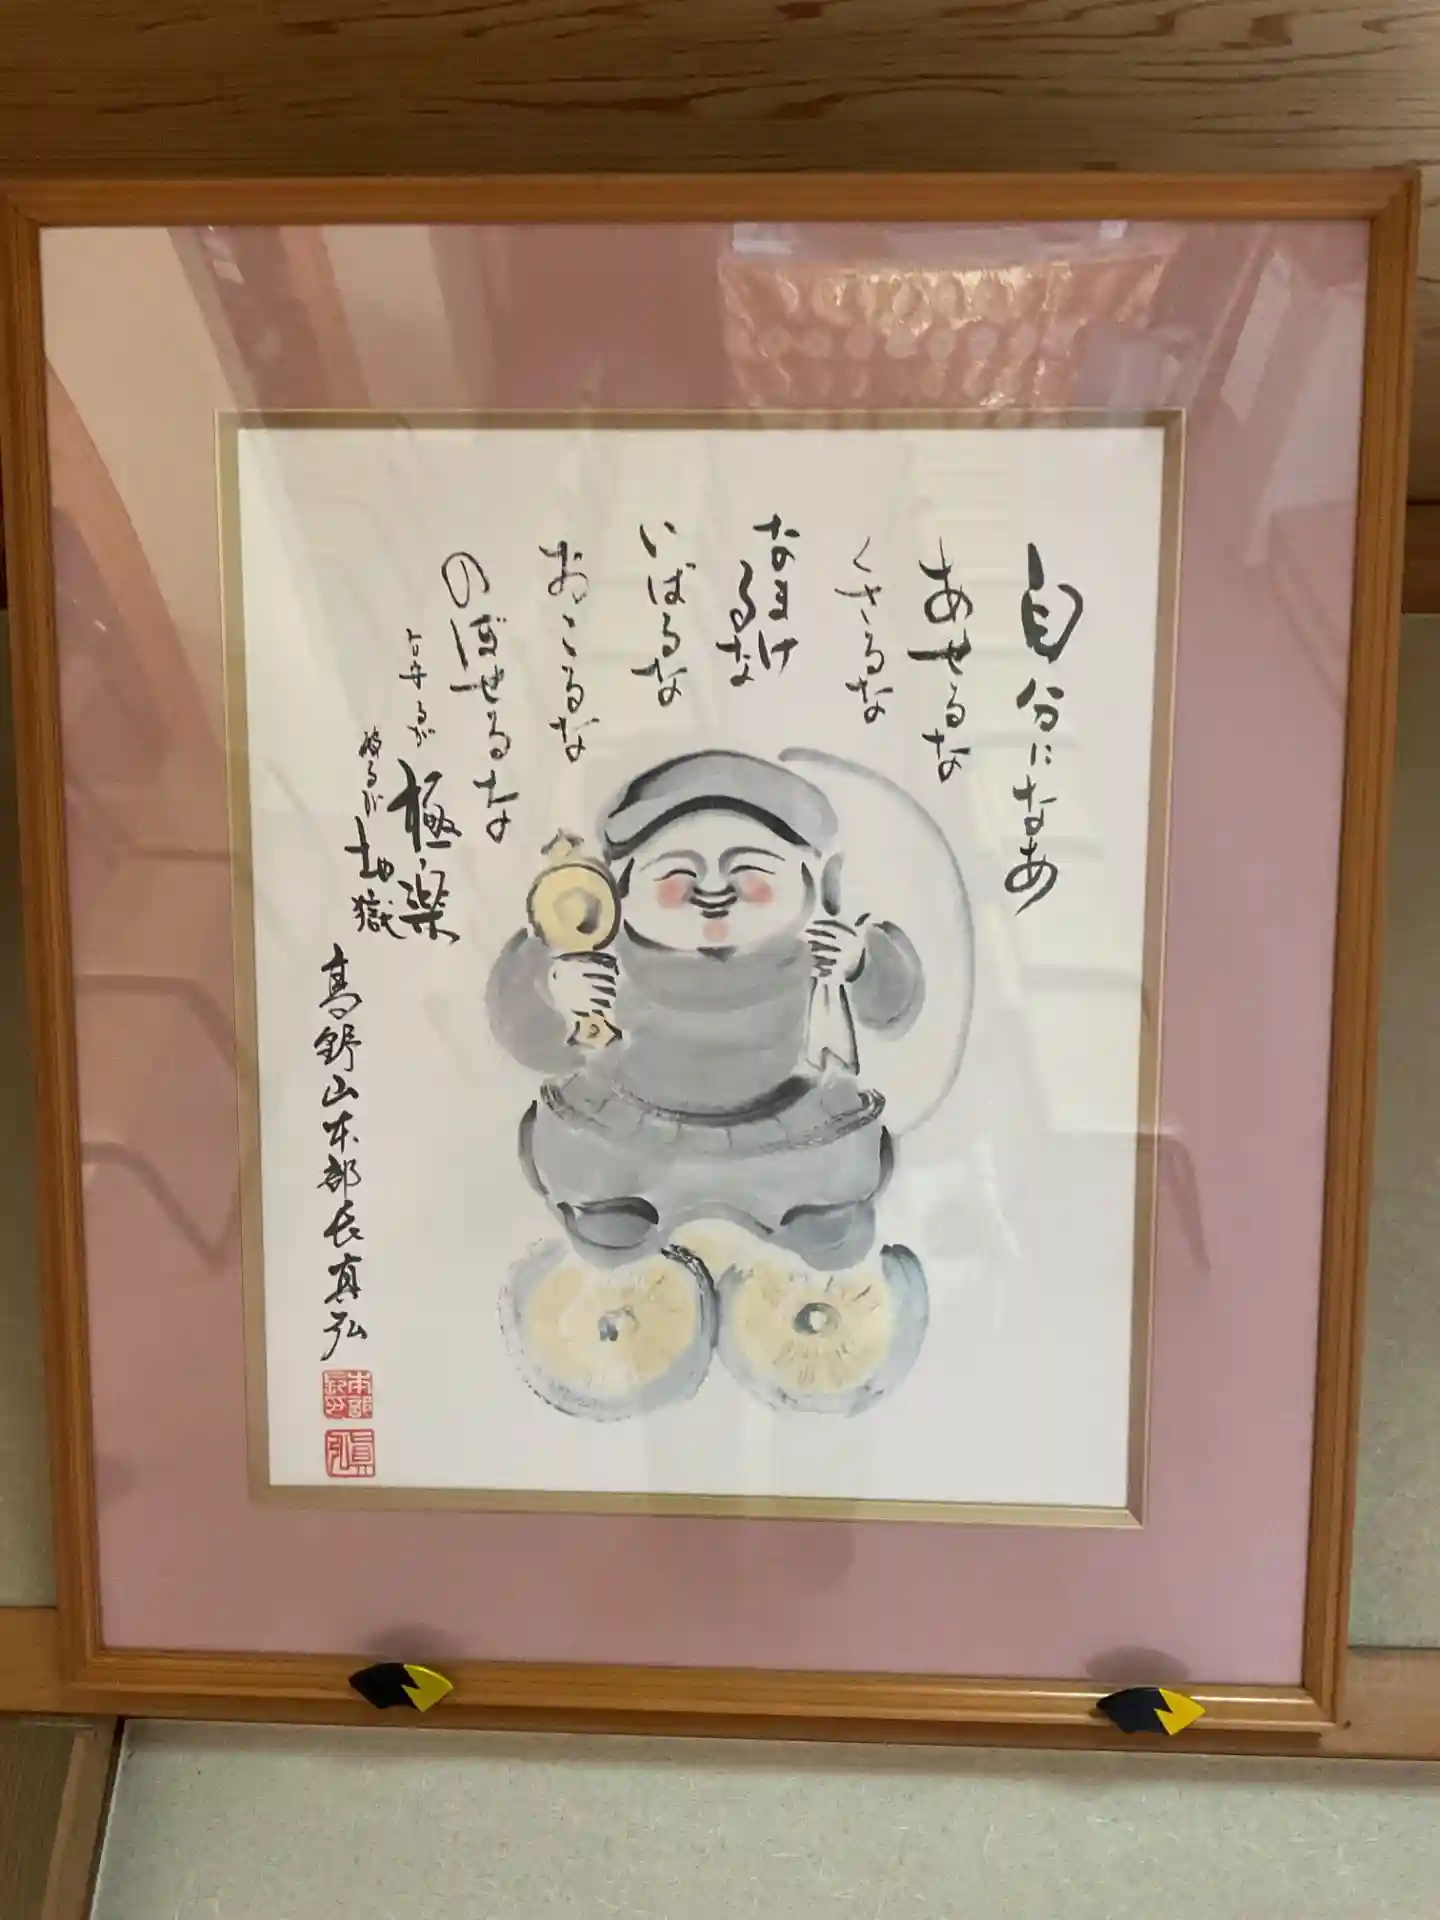 自分になあ
あせるな
くさるな
なまけ
るな
いばるな
おこるな
のぼせるな
るが 極楽
破るが 地獄
高野山本部長真弘
本部
長印
真弘